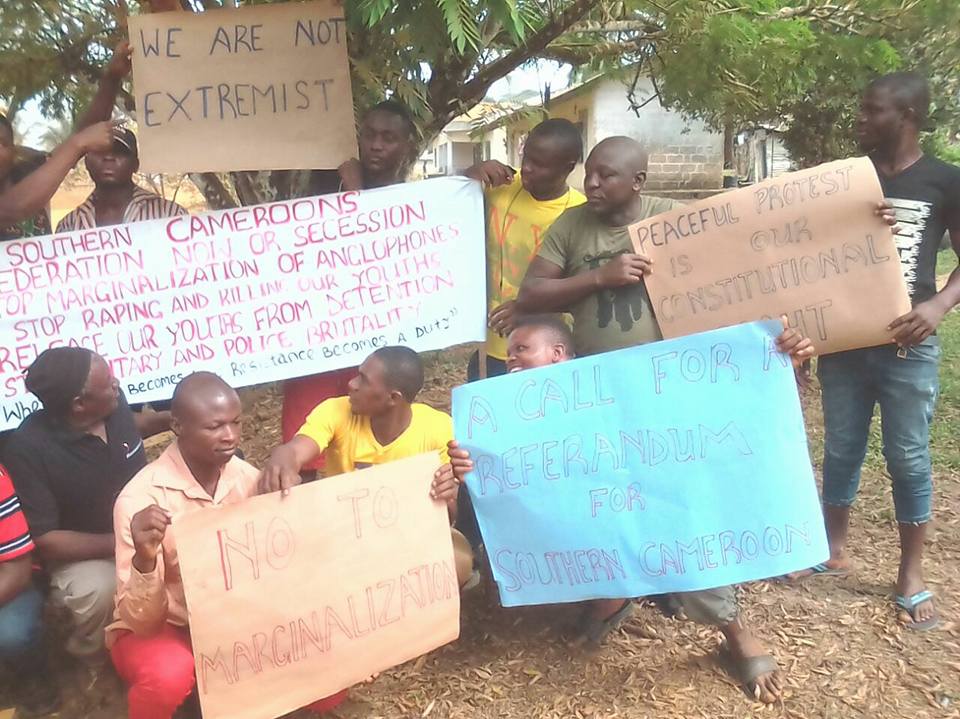 WE ARE NOT
EXTREMIST
SOUTHERN CAMEROONS'
FEDERATION NOW OR SECESSION
TOP MARGINALIZATION OF ANGLOPHONES
STOP RAPING AND KILLING OUR YOUTHS
RELEASE OUR YOUTHS FROM DETENTION
ITARY AND POLICE BRUTALITY
Becomes Resistance Becomes A Duty"
PEACEFUL PROTEST
IS OUR
CONSTITUTIONAL
HT
A CALL FOR A
REFERANDUM
FOR
SOUTHERN CAMEROON
NO TO
MARGINALIZATION